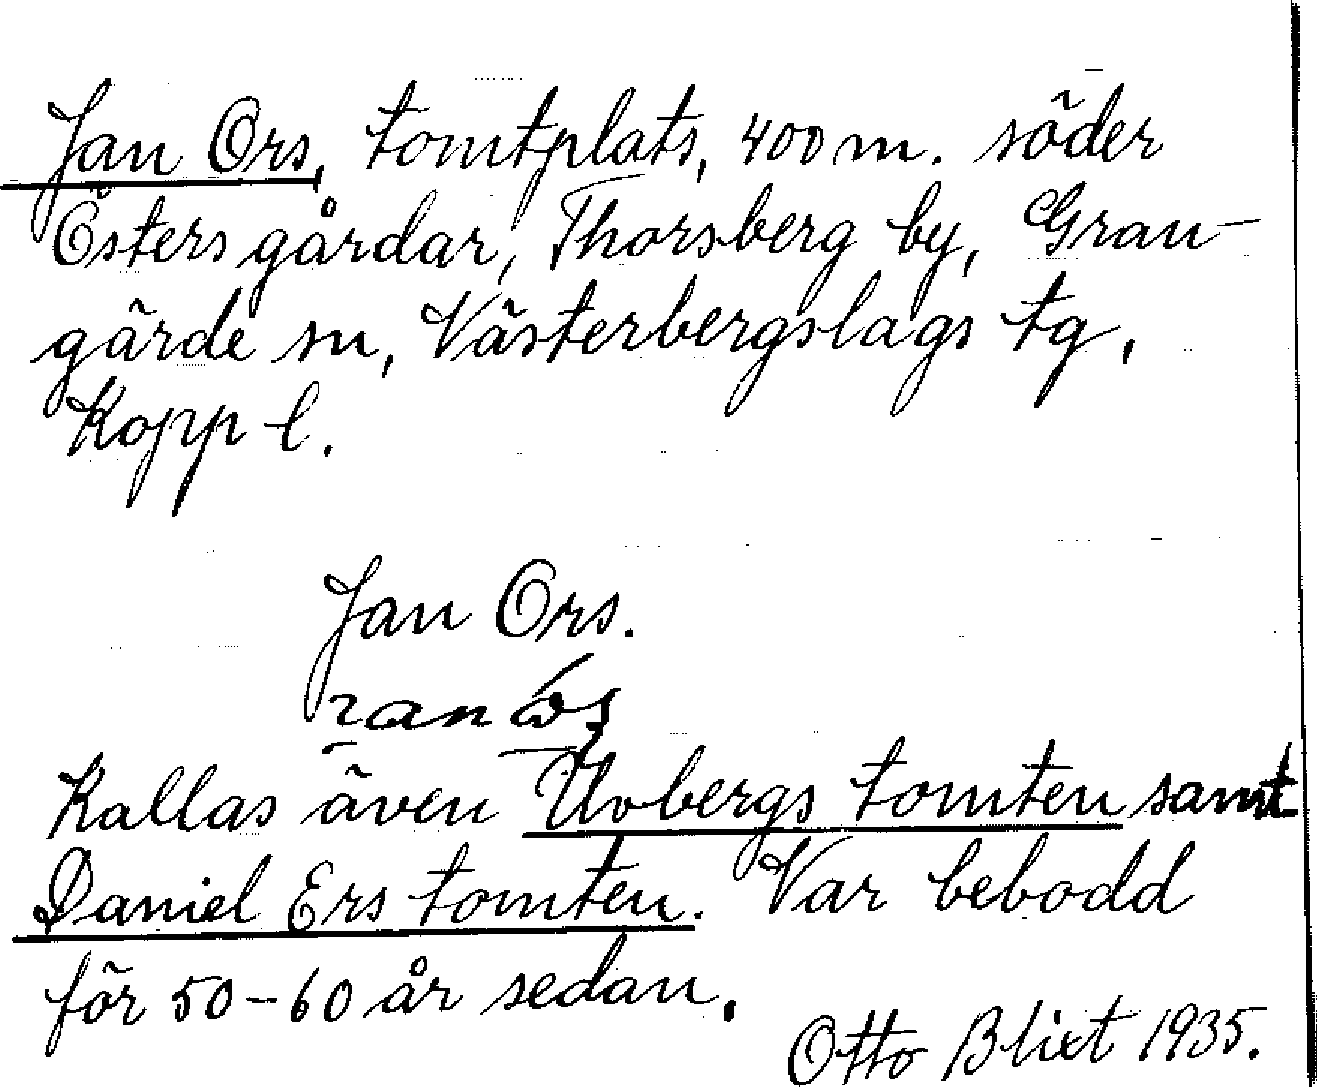 Jan Ors, tomtplats, 400 m. söder
Östers gårdar, Thorsberg by, Gran-
gärde sn, Västerbergslags tg,
Kopp l.
Jan Ors.
Kallas även Uvbergs tomten samt
Daniel Ers tomten. Var bebodd
för 50-60 år sedan.
Otto Blixt 1935.